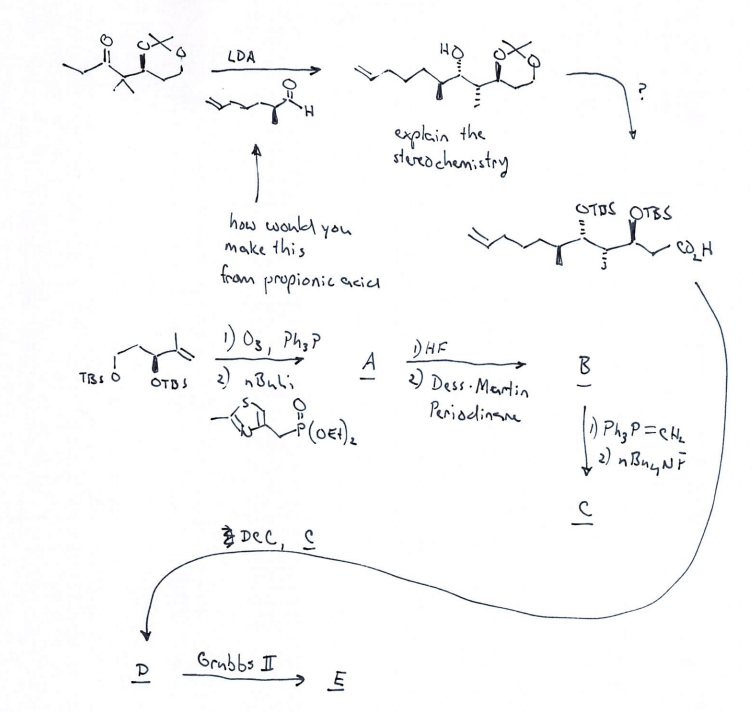 O
O
O
LDA
O
H
HO
O
O
?
explain the
stereochemistry
how would you
make this
from propionic acid
OTBS OTBS
CO2H
1) O3, Ph3P
2) nBuLi
TBSO
OTBS
A
S
N
O
P(OEt)2
1) HF
2) Dess-Martin
Periodinane
B
1) Ph3P=CH2
2) nBu4NF
C
DCC, C
D
Grubbs II
E